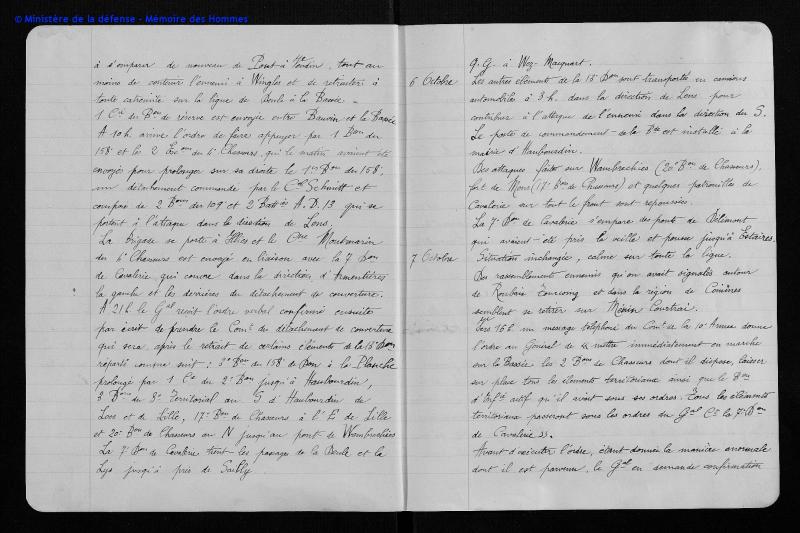 © Ministère de la défense - Mémoire des Hommes
à s'emparer de nouveau de Pont à Vendin, tout au
moins de contenir l'ennemi à Wingles et se retraiter à
toute extrémité sur la ligne de Deule à la Bassée.
1 Cie du Bon de réserve est envoyée entre Bauvin et la Bassée
A 10h arrive l'ordre de faire appuyer par 1 Bon du
158e et les 2 Esc du 4e Chasseurs, qui le matin avaient été
envoyés pour prolonger sur sa droite le 1er Bon du 158e,
un détachement commandé par le Cel Schmitt et
composé de 2 Bons du 109e et 2 Batties A.D. 13 qui se
portent à l'attaque dans la direction de Lens.
La Brigade se porte à Illies et le Cne Montmarin
du 4e Chasseurs est envoyé en liaison avec la 7e Don
de Cavalerie qui couvre dans la direction d'Armentières
la gauche et les derrières du détachement de couverture.
A 21h le Gal reçoit l'ordre verbal confirmé ensuite
par écrit de prendre le Comt du détachement de couverture
qui sera, après le retrait de certains éléments de la 13e Don
réparti comme suit : 3e Bon du 158e de Don à la Planche
prolongé par 1 Cie du 2e Bon jusqu'à Haubourdin,
3 Bons du 8e Territorial au S d'Haubourdin de
Loos et de Lille, 17e Bon de Chasseurs à l'E de Lille
et 20e Bon de Chasseurs au N jusqu'au pont de Wambrechies
La 7e Don de Cavalerie tient les passages de la Deule et la
Lys jusqu'à près de Sailly.
Q.G. à Wez-Macquart.
6 Octobre Les autres éléments de la 13e Don sont transportés en camions
automobiles à 3h. dans la direction de Lens pour
contribuer à l'attaque de l'ennemi dans la direction du S.
Le poste de commandement de la Bde est installé à la
mairie d'Haubourdin.
Des attaques faites sur Wambrechies (20e Bon de Chasseurs),
fort de Mons (17e Bon de Chasseurs) et quelques patrouilles de
Cavalerie sur tout le front sont repoussées.
La 7e Don de Cavalerie s'empare des ponts de
qui avaient été pris la veille et pousse jusqu'à Estaires.
7 Octobre Situation inchangée, calme sur toute la ligne.
Des rassemblements ennemis qu'on avait signalés autour
de Roubaix Tourcoing et dans la région de Comines
semblent se retirer sur Menin Courtrai.
Vers 16h un message téléphoné du Comt de la 10e Armée donne
l'ordre au Général de « mettre immédiatement en marche
sur la Bassée les 2 Bons de Chasseurs dont il dispose, laisser
sur place tous les éléments territoriaux ainsi que le Bon
d'Infie actif qu'il avait sous ses ordres. Tous les éléments
territoriaux passeront sous les ordres du Gal Ct la 7e Don
de Cavalerie ».
Avant d'exécuter l'ordre, étant donnée la manière anormale
dont il est parvenu, le Gal en demande confirmation